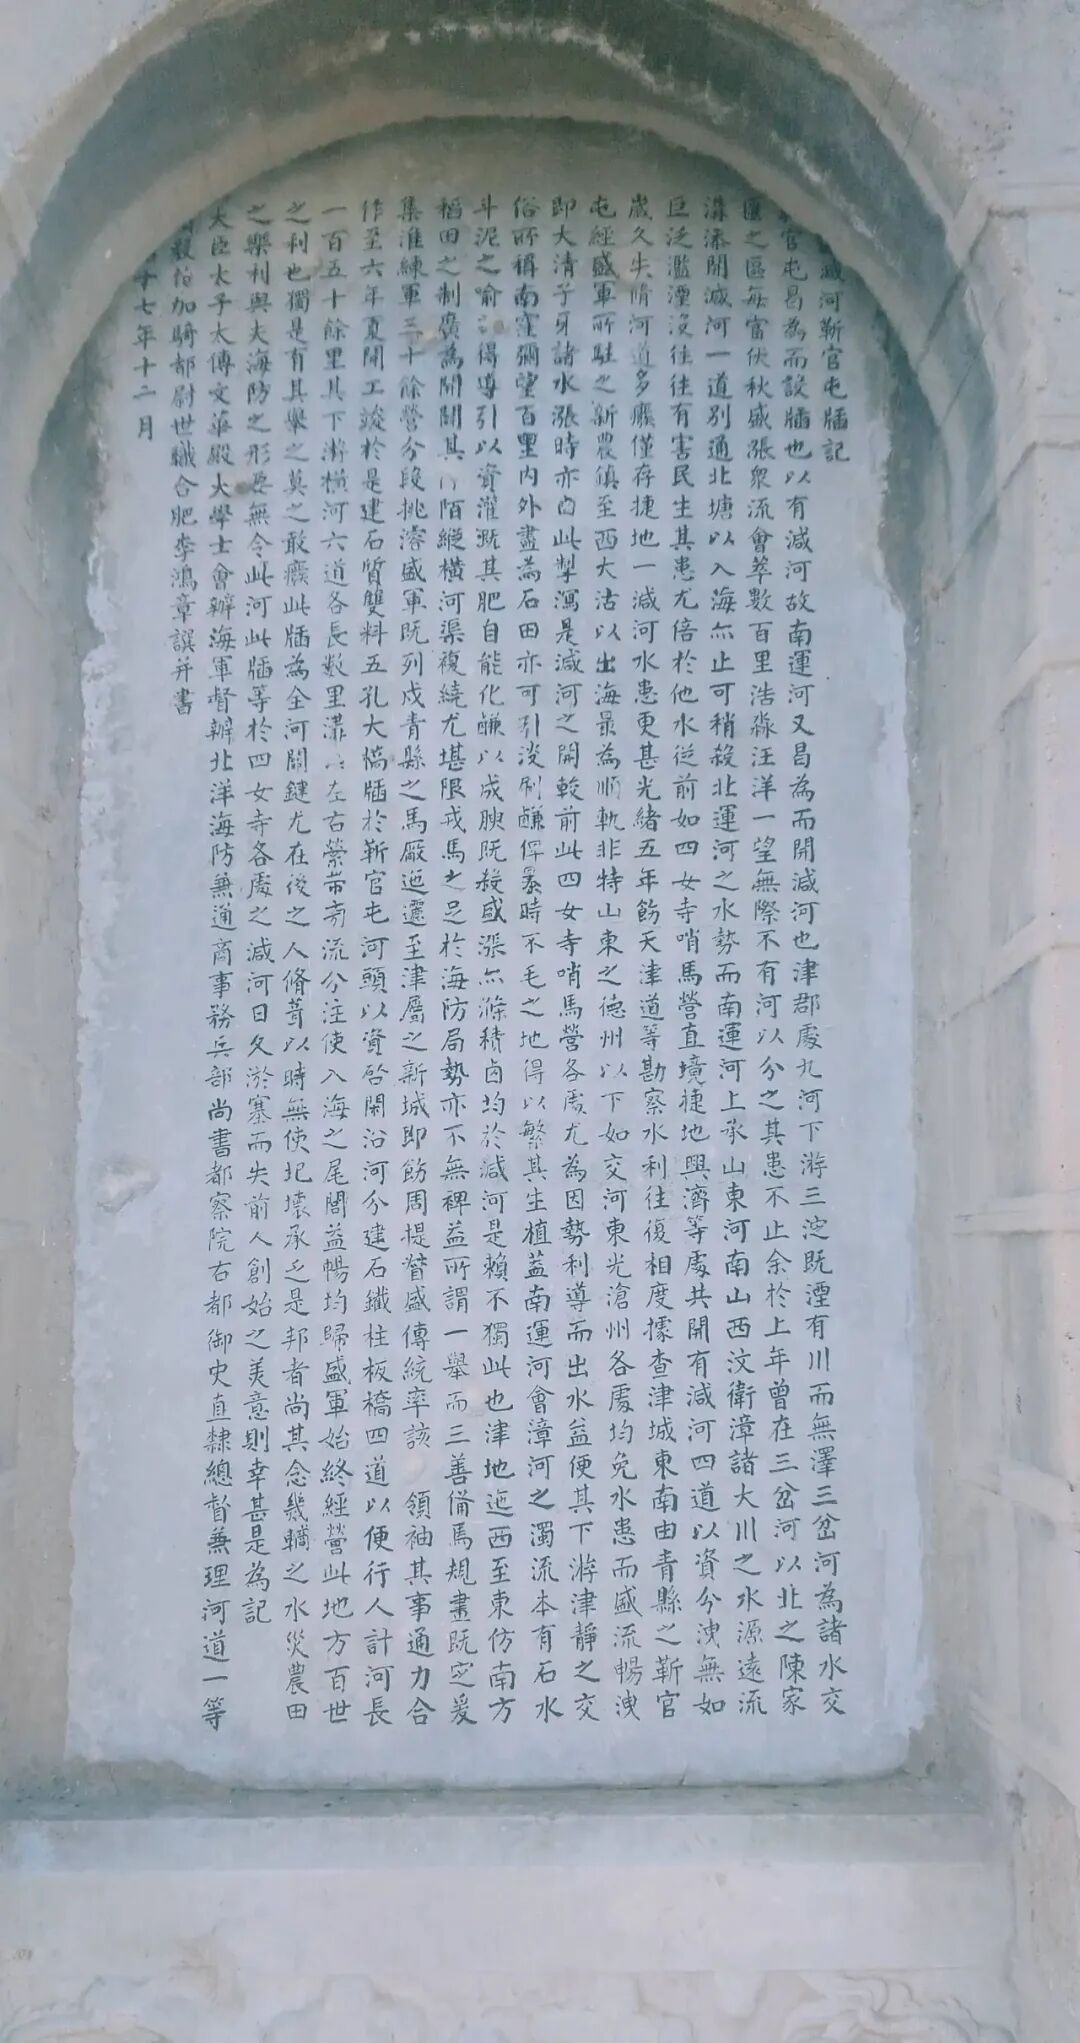 減河靳官屯牐記
官屯曷為而設牐也以有減河故南運河又曷為而開減河也津郡處九河下游三淀既湮有川而無澤三岔河為諸水交
匯之區每當伏秋盛漲眾流會萃數百里浩淼汪洋一望無際不有河以分之其患不止余於上年曾在三岔河以北之陳家
溝添開減河一道別通北塘以入海亦止可稍殺北運河之水勢而南運河上承山東河南山西汶衛漳諸大川之水源遠流
巨泛濫湮沒往往有害民生其患尤倍於他水從前如四女寺哨馬營直境捷地興濟等處共開有減河四道以資分洩無如
歲久失脩河道多癈僅存捷地一減河水患更甚光緒五年飭天津道等勘察水利往復相度據查津城東南由青縣之靳官
屯經盛軍所駐之新農鎮至西大沽以出海最為順軌非特山東之德州以下如交河東光滄州各處均免水患而盛流暢洩
即大清子牙諸水漲時亦由此掣瀉是減河之開較前此四女寺哨馬營各處尤為因勢利導而出水益便其下游津靜之交
俗所稱南窪彌望百里內外盡為石田亦可引淡刷鹻俾曩時不毛之地得以繁其生植蓋南運河會漳河之濁流本有石水
斗泥之喻得導引以資灌溉其肥自能化鹻以成腴既殺盛漲亦滌積鹵均於減河是賴不獨此也津地迤西至東仿南方
稻田之制廣為開闢其陌縱橫河渠複繞尤堪限戎馬之足於海防局勢亦不無裨益所謂一舉而三善備焉規畫既定爰
集淮練軍三十餘營分段挑濬盛軍既列戍青縣之馬廠迤邐至津屬之新城即飭周提督盛傳統率該領袖其事通力合
作至六年夏開工竣於是建石質雙料五孔大橋牐於靳官屯河頭以資啓閉沿河分建石鐵柱板橋四道以便行人計河長
一百五十餘里其下游橫河六道各長數里溝左右縈帶旁流分注使入海之尾閭益暢均歸盛軍始終經營此地方百世
之利也獨是有其舉之莫之敢癈此牐為全河關鍵尤在後之人脩葺以時無使圮壞承乏是邦者尚其念畿輔之水災農田
之樂利與夫海防之形要無令此河此牐等於四女寺各處之減河日久淤塞而失前人創始之美意則幸甚是為記
大臣太子太傅文華殿大學士會辦海軍督辦北洋海防兼通商事務兵部尚書都察院右都御史直隸總督兼理河道一等
毅伯加騎都尉世職合肥李鴻章譔并書
十七年十二月